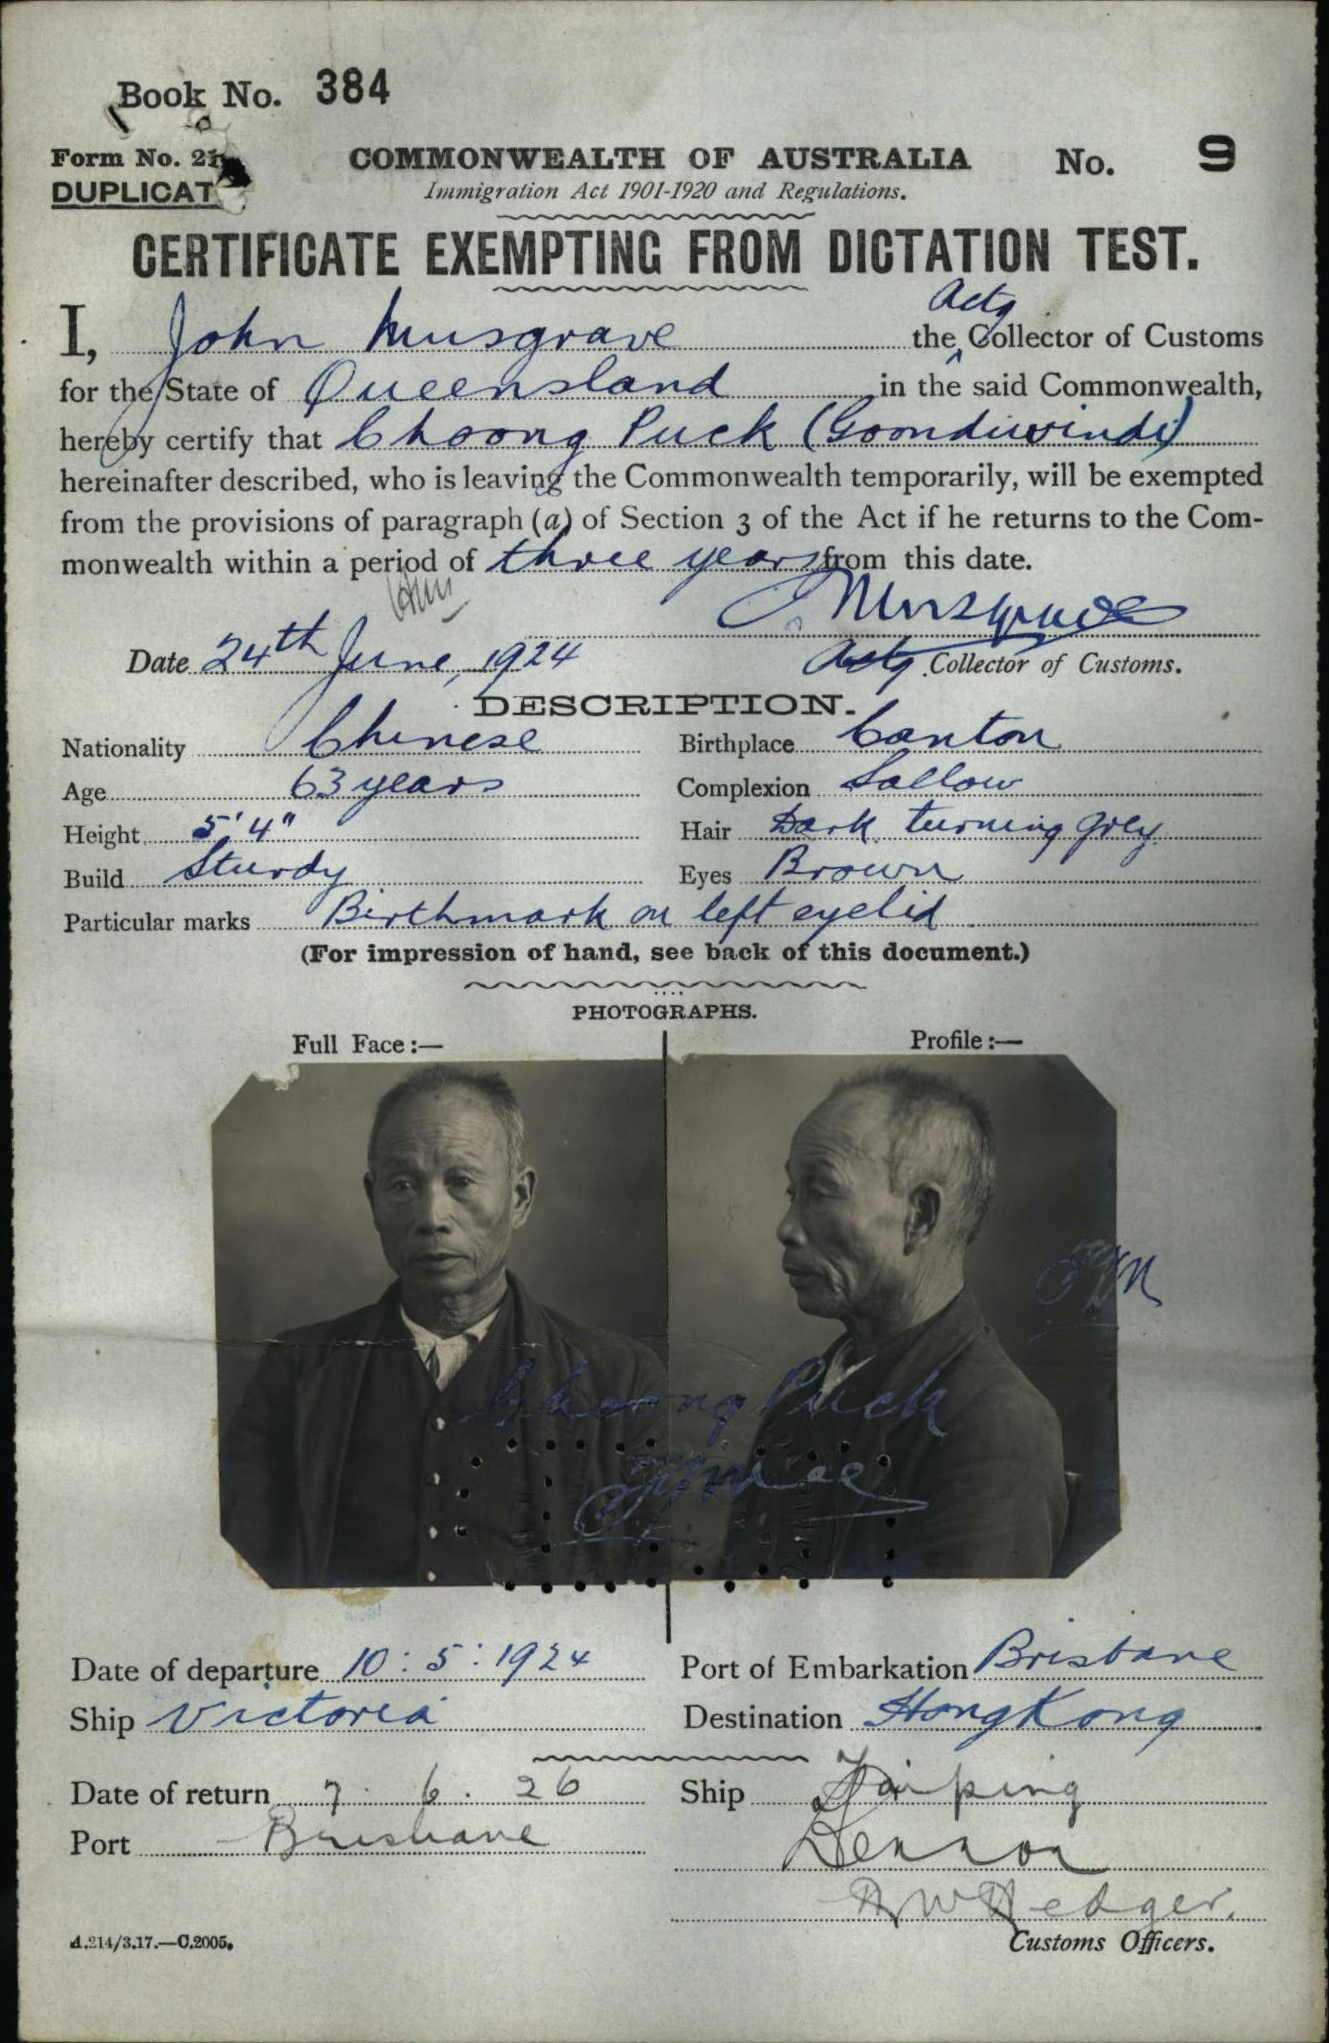 Book No. 384
Form No. 21
DUPLICAT
COMMONWEALTH OF AUSTRALIA No. 9
Immigration Act 1901-1920 and Regulations.
CERTIFICATE EXEMPTING FROM DICTATION TEST.
Actg
I, John Musgrave the Collector of Customs
for the State of Queensland in the said Commonwealth,
hereby certify that Choong Puck (Goondiwindi)
hereinafter described, who is leaving the Commonwealth temporarily, will be exempted
from the provisions of paragraph (a) of Section 3 of the Act if he returns to the Com-
monwealth within a period of three years from this date.
J. Musgrave
Date 24th June, 1924 Actg Collector of Customs.
DESCRIPTION.
Nationality Chinese Birthplace Canton
Age 63 years Complexion Sallow
Height 5' 4" Hair Dark turning grey
Build Sturdy Eyes Brown
Particular marks Birthmark on left eyelid
(For impression of hand, see back of this document.)
PHOTOGRAPHS.
Full Face:— Profile:—
Choong Puck
Date of departure 10:5:1924 Port of Embarkation Brisbane
Ship Victoria Destination HongKong
Date of return 7. 6. 26 Ship Taiping
Port Brisbane
Customs Officers.
A.214/3.17.—C.2005.